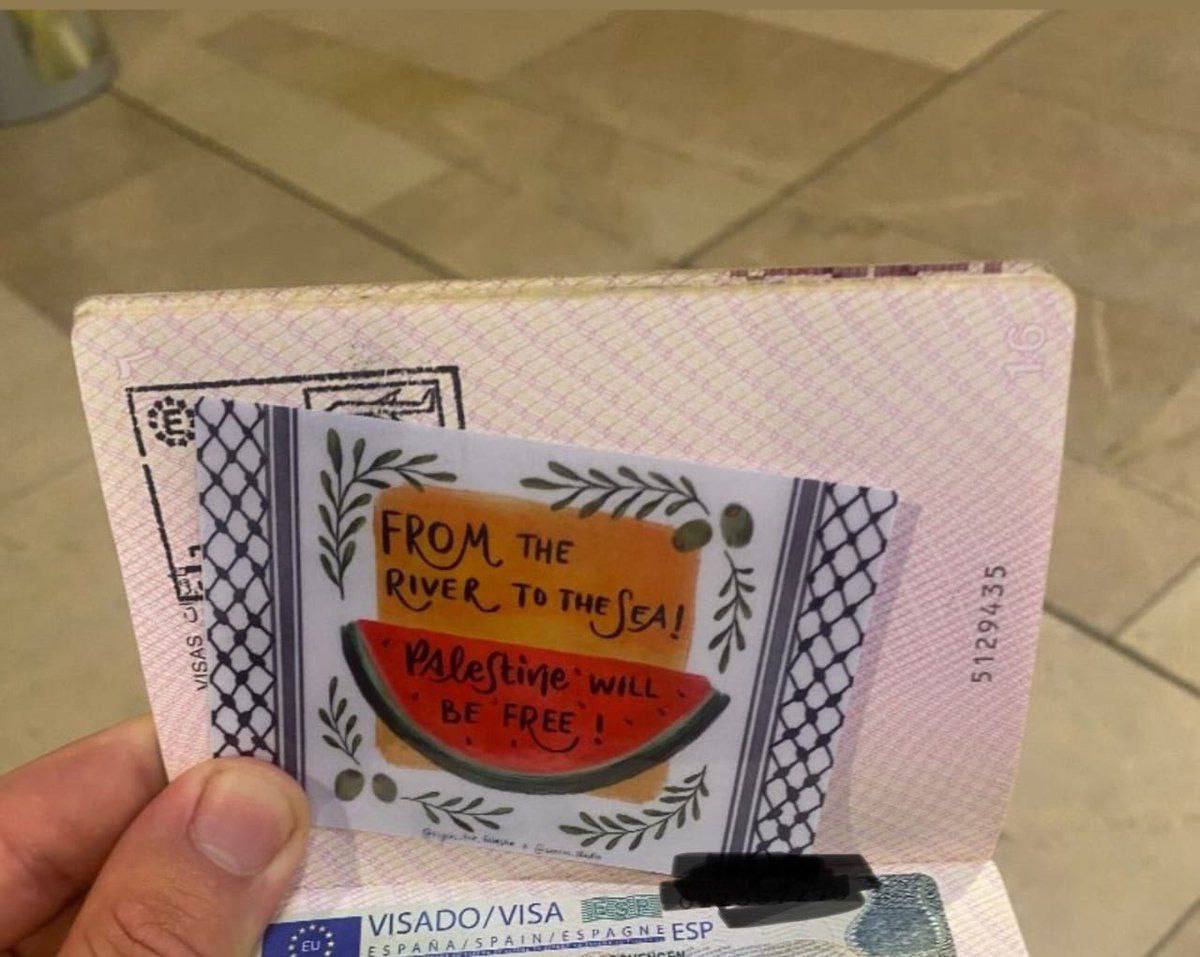 E
16
VISAS
5129435
FROM THE
RIVER TO THE SEA!
Palestine WILL
BE FREE!
EU
VISADO/VISA ESP
ESPAÑA/SPAIN/ESPAGNE ESP